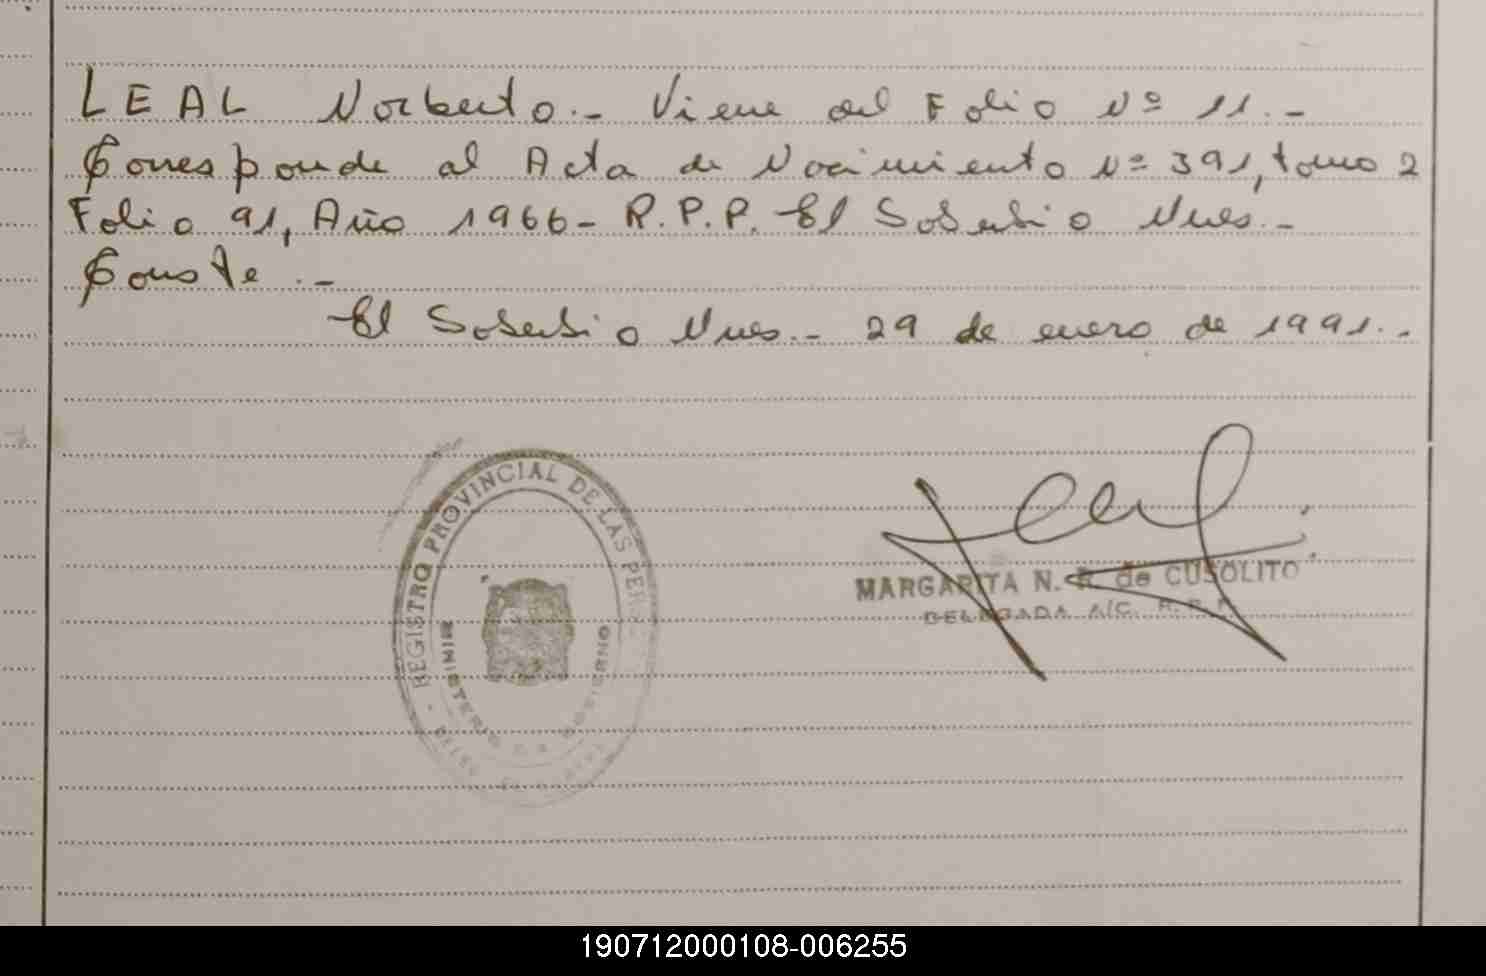 LEAL Norberto.- Viene del Folio Nº 11.-
Corresponde al Acta de Nacimiento Nº 391, tomo 2
Folio 91, Año 1966- R.P.P. El Soberbio Mnes.-
Conste.-
El Soberbio Mnes.- 29 de enero de 1991.-
REGISTRO PROVINCIAL DE LAS PERS
MINISTERIO DE GOBIERNO
MARGARITA N. R. de CUSOLITO
DELEGADA A/C. R.P.P.
190712000108-006255